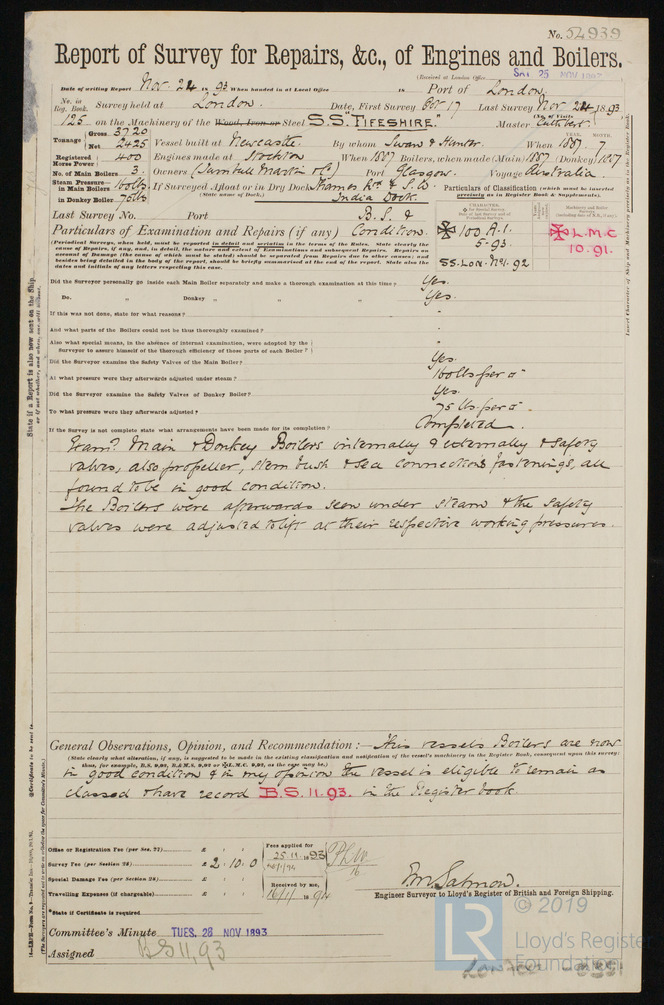 No. 54939
Report of Survey for Repairs, &c., of Engines and Boilers.
(Received at London Office SAT. 25 NOV 1893)
Date of writing Report Nov 24 18 93 When handed in at Local Office 18 Port of London.
No. in Reg. Book. Survey held at London. Date, First Survey Oct 17 Last Survey Nov 24 1893
(No. of Visits
125 on the Machinery of the Wood, Iron or Steel S.S. "FIFESHIRE." Master Cuthbert
Tonnage Gross 3720 Net 2425 Vessel built at Newcastle. By whom Swan & Hunter. When 1887 YEAR. MONTH. 7
Registered Horse Power 400 Engines made at Stockton When 1887 Boilers, when made (Main) 1887 (Donkey) 1887
No. of Main Boilers 3. Owners (Turnbull Martin & Co) Port Glasgow. Voyage Australia
Steam Pressure in Main Boilers 160 lbs. If Surveyed Afloat or in Dry Dock Thames &
in Donkey Boiler 75 lbs (State name of Dock.) India Dock.
Particulars of Classification (which must be inserted precisely as in Register Book & Supplements).
Last Survey No. Port B.S. &
Particulars of Examination and Repairs (if any) Condition.
100 A.1.
5.93.
SS.LON.No1.92
L.M.C
10.91.
(Periodical Surveys, when held, must be reported in detail and seriatim in the terms of the Rules. State clearly the
cause of Repairs, if any, and, in detail, the nature and extent of Examinations and subsequent Repairs. Repairs on
account of Damage (the cause of which must be stated) should be separated from Repairs due to other causes; and
besides being detailed in the body of the report, should be briefly summarised at the end of the report. State also the
dates and initials of any letters respecting this case.
Did the Surveyor personally go inside each Main Boiler separately and make a thorough examination at this time? Yes.
Do. " Donkey " " " Yes.
If this was not done, state for what reasons? "
And what parts of the Boilers could not be thus thoroughly examined? "
Also what special means, in the absence of internal examination, were adopted by the
Surveyor to assure himself of the thorough efficiency of those parts of each Boiler? "
Did the Surveyor examine the Safety Valves of the Main Boiler? Yes.
At what pressure were they afterwards adjusted under steam? 160 lbs per □"
Did the Surveyor examine the Safety Valves of Donkey Boiler? Yes.
To what pressure were they afterwards adjusted? 75 lbs per □"
If the Survey is not complete state what arrangements have been made for its completion? Completed.
Examd. Main & Donkey Boilers internally & externally & safety
valves, also propeller, stern bush & sea connections fastenings, all
found to be in good condition.
The Boilers were afterwards seen under steam & the safety
valves were adjusted to lift at their respective working pressures.
General Observations, Opinion, and Recommendation:— This vessels Boilers are now
(State clearly what alteration, if any, is suggested to be made in the existing classification and notification of the vessel's machinery in the Register Book, consequent upon this survey;
thus, for example, B.S. 9,92, B.&M.S. 9,92 or L.M.C. 9,92, as the case may be.)
in good condition & in my opinion the vessel is eligible to remain as
classed & have record B.S. 11.93. in the Register book.
Office or Registration Fee (per Sec. 27) £ : :
Survey Fee (per Section 28) £ 2 : 10 : 0
Special Damage Fee (per Section 28) £ : :
Travelling Expenses (if chargeable) £ : :
Fees applied for
25.11.1893
Received by me,
16/1/1894
*State if Certificate is required
E.W. Salmon.
Engineer Surveyor to Lloyd's Register of British and Foreign Shipping.
Committee's Minute TUES. 28 NOV 1893
Assigned BS 11,93
© 2019
LR
Lloyd's Register
Foundation
State if a Report is also now sent on the Ship